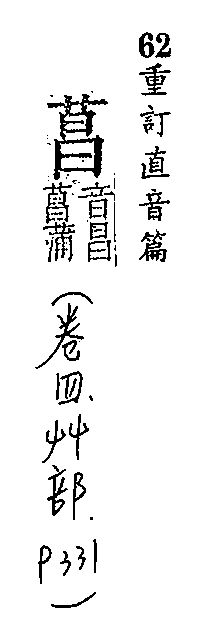 62重訂直音篇
菖
音昌
菖蒲
(卷四、艸部.P331)